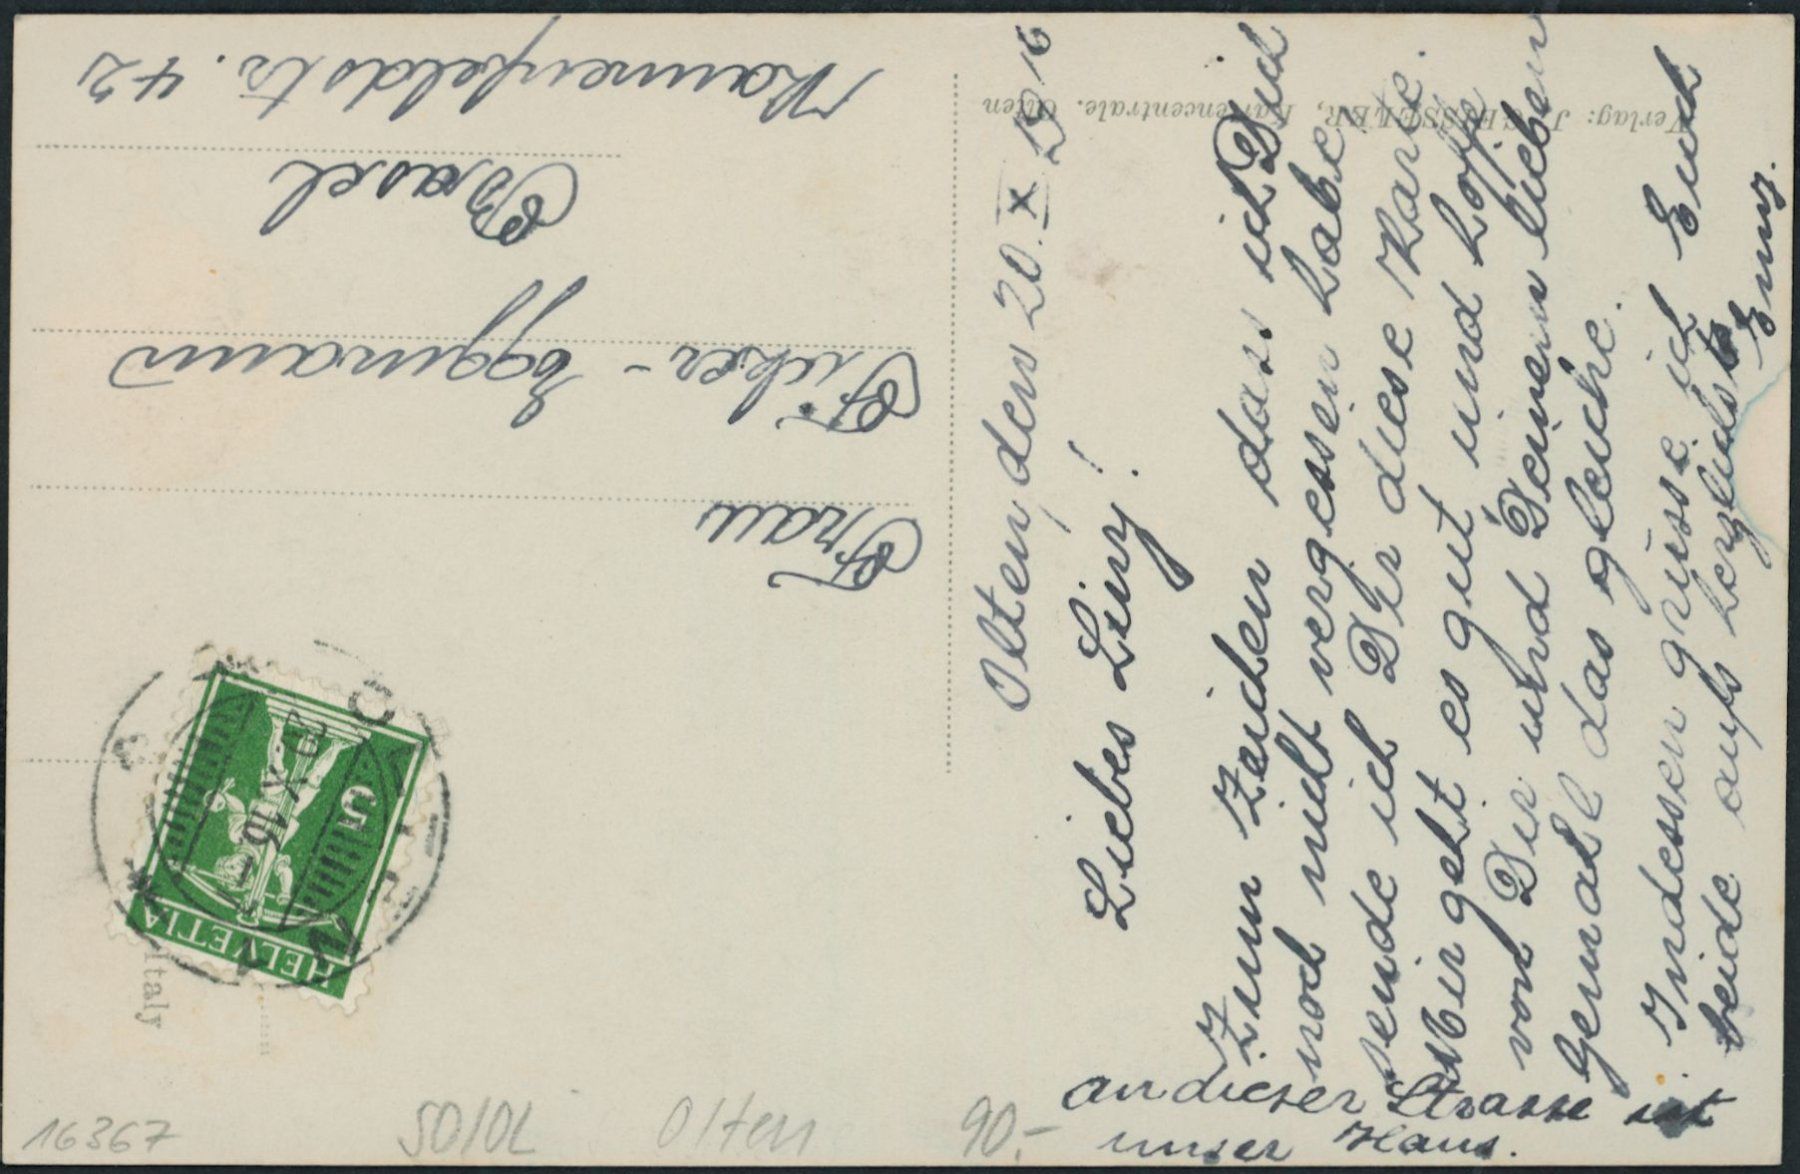 Olten, den 20. X 1916
Liebes Liny!
Zum Zeichen dass ich Dich
noch nicht vergessen habe,
sende ich Dir diese Karte.
Mir geht es gut und hoffe
von Dir und Deinem lieben
Gemahl das gleiche.
Indessen grüsse ich Euch
beide aufs herzlichste
Emmy.
an dieser Strasse ist
unser Haus.
Frau
Ficker-Eggmann
Basel
Kannenfeldstr. 42
Verlag: J. GESSLER, Kartencentrale. Olten
HELVETIA
5
OLTEN
X.16-
Italy
16367
SO/OL
Olten
90.-